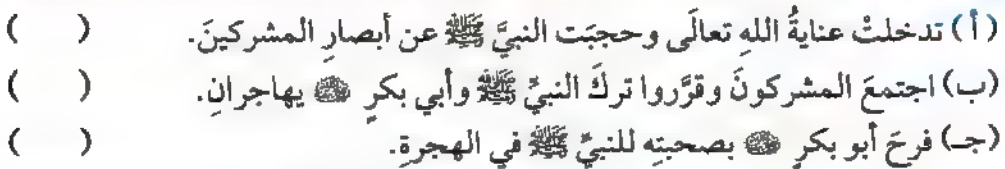 (أ) تدخلتْ عنايةُ اللهِ تعالَى وحجبَت النبيَّ ﷺ عن أبصارِ المشركينَ. (    )
(ب) اجتمعَ المشركونَ وقرَّروا تركَ النبيِّ ﷺ وأبي بكرٍ رضي الله عنه يهاجرانِ. (    )
(جـ) فرحَ أبو بكرٍ رضي الله عنه بصحبتِه للنبيِّ ﷺ في الهجرةِ. (    )